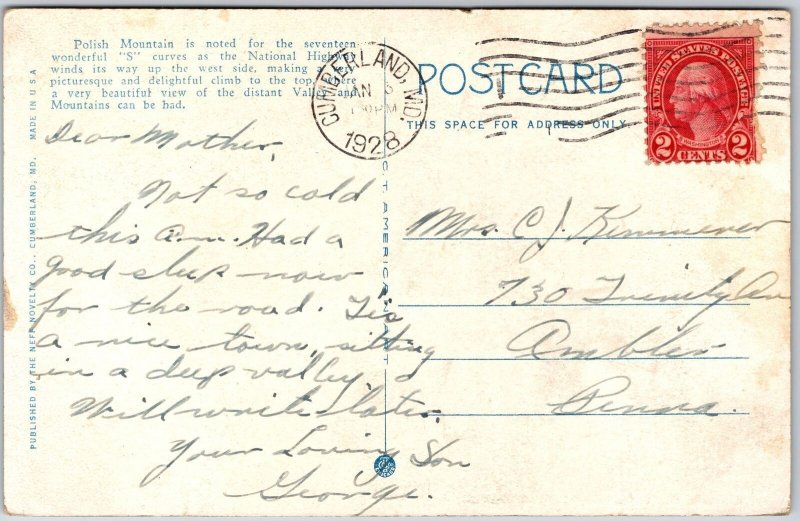 Polish Mountain is noted for the seventeen
wonderful "S" curves as the National Highway
winds its way up the west side, making a most
picturesque and delightful climb to the top, where
a very beautiful view of the distant Valley and
Mountains can be had.
CUMBERLAND, MD.
1928
POST CARD
THIS SPACE FOR ADDRESS ONLY
UNITED STATES POSTAGE
WASHINGTON
2 CENTS 2
MADE IN U.S.A
PUBLISHED BY THE NEFF NOVELTY CO., CUMBERLAND, MD.
Dear Mother,
Not so cold
this a.m. Had a
good sleep now
for the road. Tis
a nice town, sitting
in a deep valley.
Will write later.
Your Loving Son
George.
Mrs. C J. Kemmerer
730 Trinity Av
Ambler
Penna.